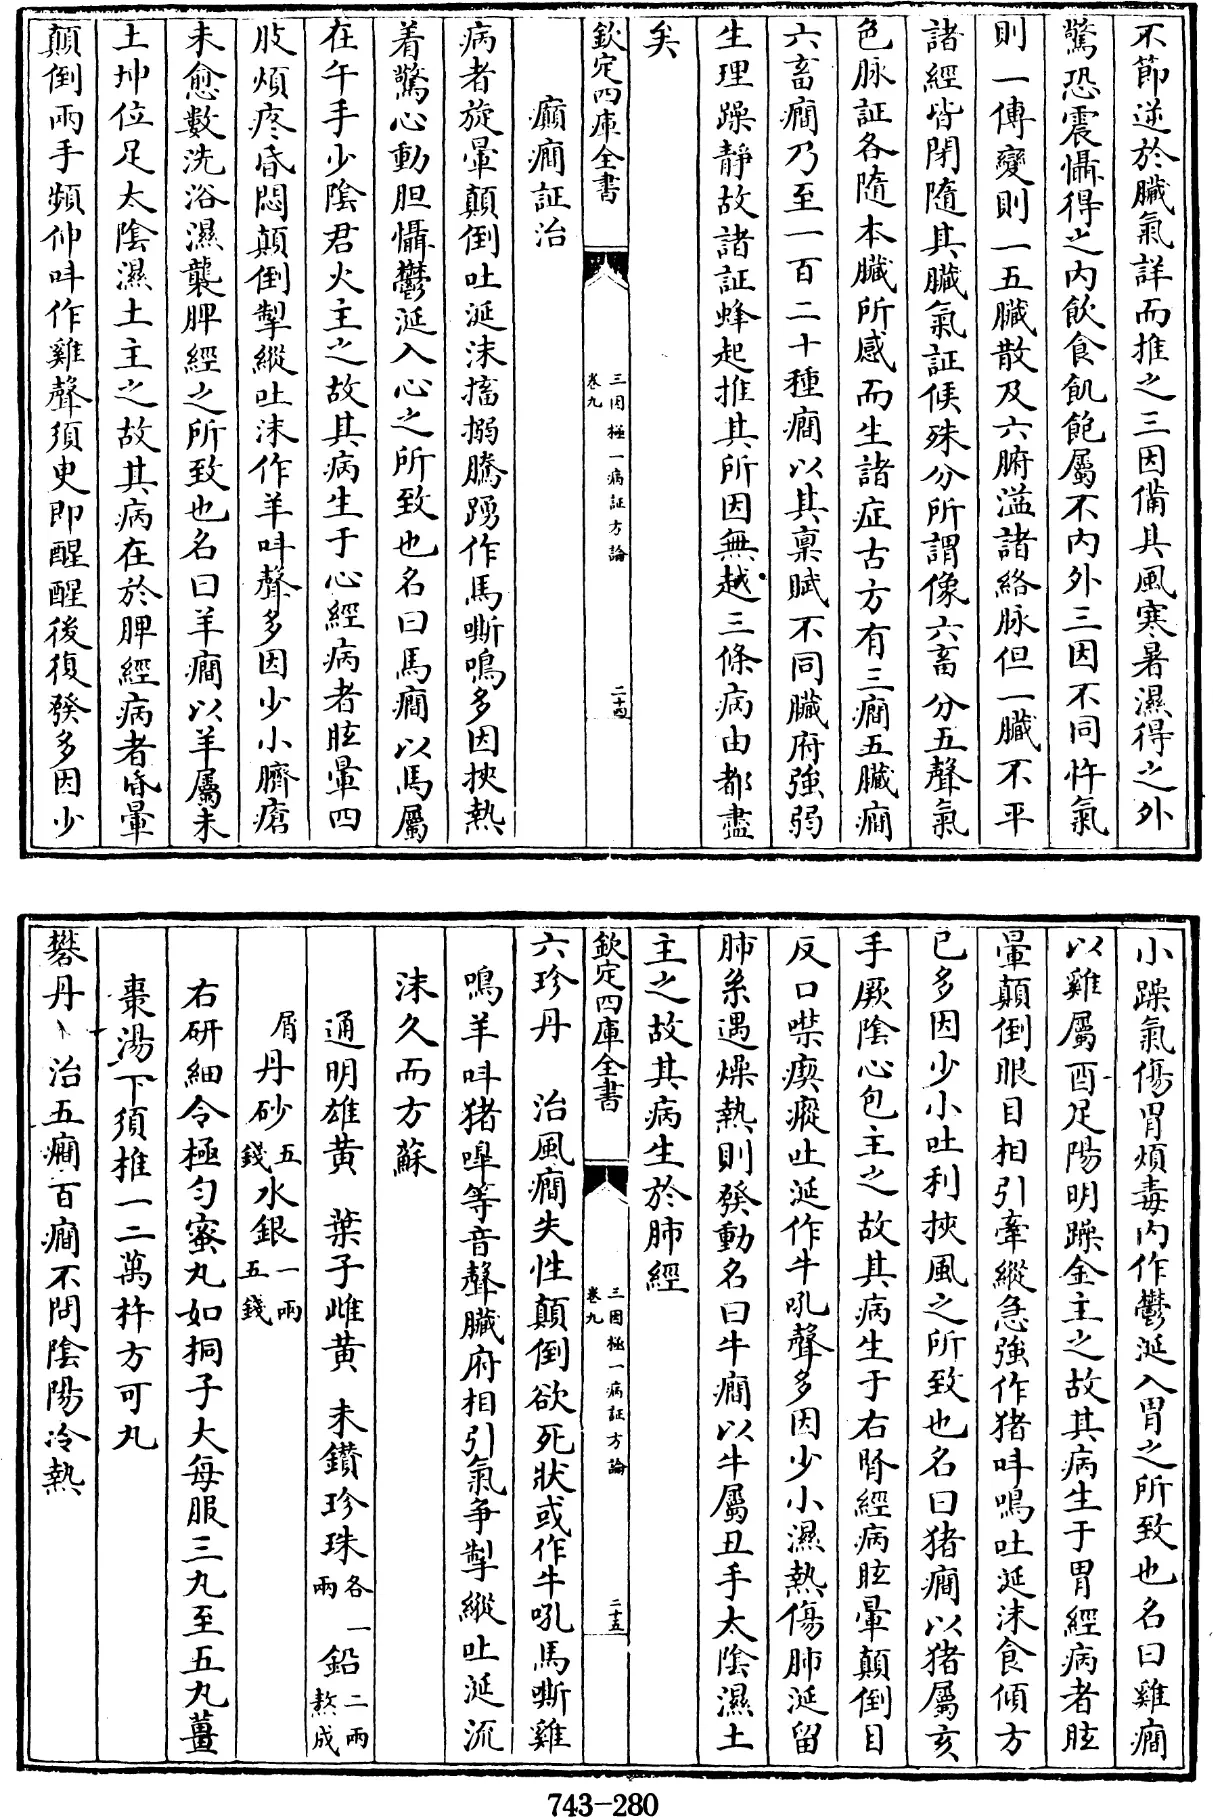 不節逆於臟氣詳而推之三因備具風寒暑濕得之外
驚恐震懾得之内飲食飢飽屬不内外三因不同忤氣
則一傳變則一五臟散及六腑溢諸絡脉但一臟不平
諸經皆閉隨其臟氣証候殊分所謂像六畜分五聲氣
色脉証各隨本臟所感而生諸症古方有三癎五臟癎
六畜癎乃至一百二十種癎以其禀賦不同臟府強弱
生理躁靜故諸証蜂起推其所因無越三條病由都盡
矣
欽定四庫全書
三因極一病証方論
卷九
二十四
癲癎証治
病者旋暈顛倒吐涎沫搐搦騰踴作馬嘶鳴多因挾熱
着驚心動胆懾鬱涎入心之所致也名曰馬癎以馬屬
在午手少陰君火主之故其病生于心經病者眩暈四
肢煩疼昏悶顛倒掣縱吐沫作羊呌聲多因少小臍瘡
未愈數洗浴濕襲脾經之所致也名曰羊癎以羊屬未
土坤位足太陰濕土主之故其病在於脾經病者昏暈
顛倒兩手頻伸呌作雞聲須臾即醒醒後復發多因少
小躁氣傷胃煩毒内作鬱涎入胃之所致也名曰雞癎
以雞屬酉足陽明躁金主之故其病生于胃經病者眩
暈顛倒眼目相引牽縱急強作猪呌鳴吐涎沫食傾方
已多因少小吐利挾風之所致也名曰猪癎以猪屬亥
手厥陰心包主之故其病生于右腎經病眩暈顛倒目
反口噤瘈瘲吐涎作牛吼聲多因少小濕熱傷肺涎留
肺系遇燥熱則發動名曰牛癎以牛屬丑手太陰濕土
主之故其病生於肺經
欽定四庫全書
三因極一病証方論
卷九
二十五
六珍丹　治風癎失性顛倒欲死狀或作牛吼馬嘶雞
鳴羊呌猪㘁等音聲臟府相引氣争掣縱吐涎流
沫久而方蘇
通明雄黄　葉子雌黄　未鑽珍珠各一兩　鉛二兩熬成
屑丹砂五錢水銀一兩五錢
右研細令極勻蜜丸如桐子大每服三丸至五丸薑
棗湯下須推一二萬杵方可丸
礬丹　治五癎百癎不問陰陽冷熱
743-280